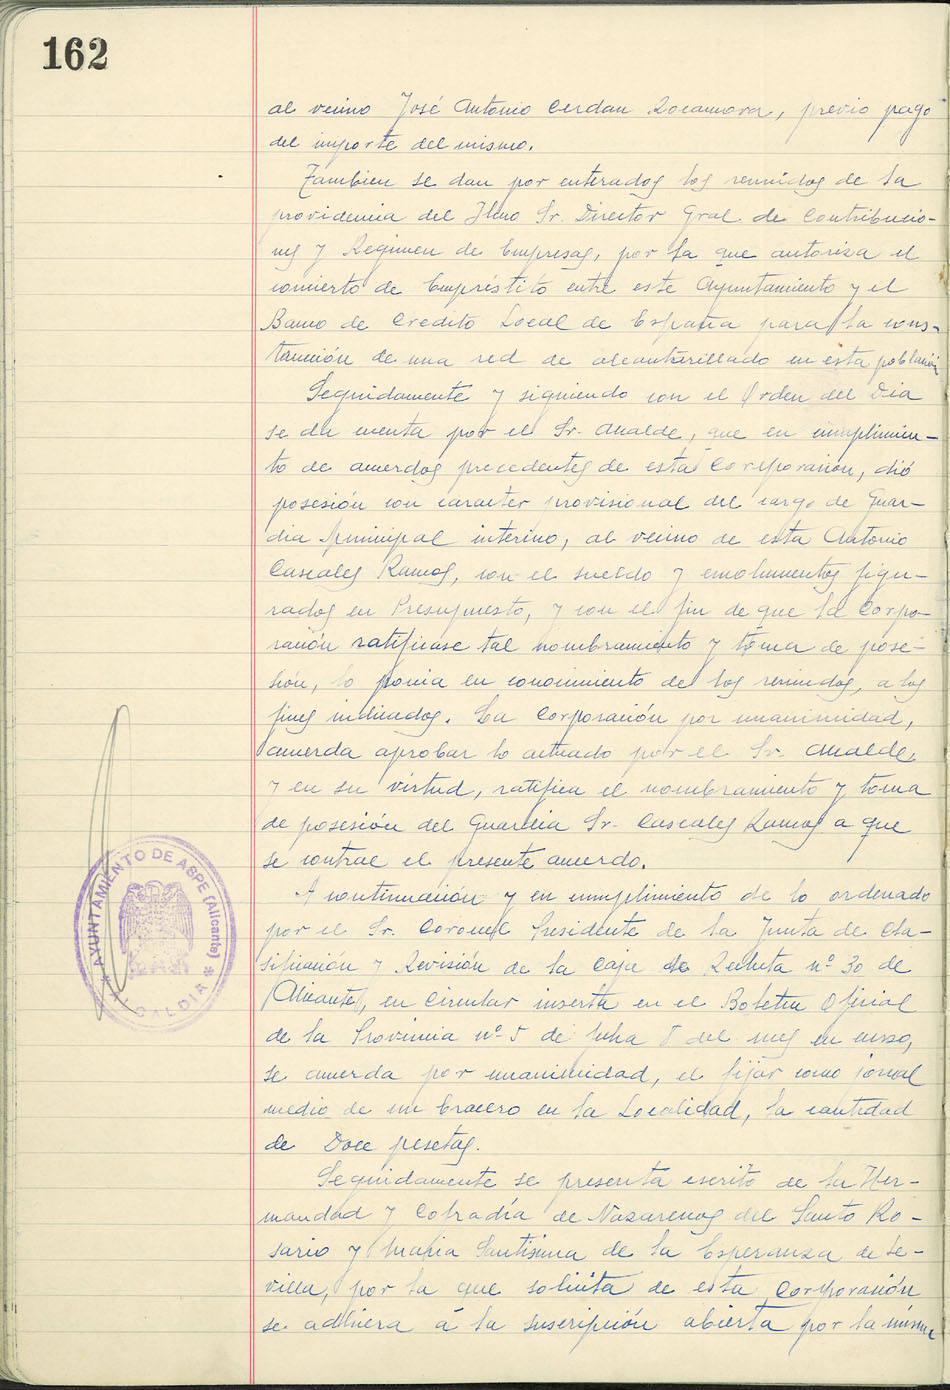 162
al vecino José Antonio Cerdan Rocamora, previo pago
del importe del mismo.
Tambien se dan por enterados los reunidos de la
providencia del Ilmo Sr. Director Gral. de Contribucio-
nes y Regimen de Empresas, por la que autoriza el
concierto de Empréstito entre este Ayuntamiento y el
Banco de Credito Local de España para la cons-
trucción de una red de alcantarillado en esta población
Seguidamente y siguiendo con el Orden del Dia
se da cuenta por el Sr. Alcalde, que en cumplimien-
to de acuerdos precedentes de esta Corporación, dió
posesión con caracter provisional del cargo de Guar-
dia Municipal interino, al vecino de esta Antonio
Cascales Ramos, con el sueldo y emolumentos figu-
rados en Presupuesto, y con el fin de que la Corpo-
ración ratificase tal nombramiento y toma de pose-
sión, lo ponia en conocimiento de los reunidos, a los
fines indicados. La Corporación por unanimidad,
acuerda aprobar lo actuado por el Sr. Alcalde,
y en su virtud, ratifica el nombramiento y toma
de posesión del Guardia Sr. Cascales Ramos a que
se contrae el presente acuerdo.
A continuación y en cumplimiento de lo ordenado
por el Sr. Coronel Presidente de la Junta de Cla-
sificación y Revisión de la Caja de Recluta nº 30 de
Alicante, en Circular inserta en el Boletin Oficial
de la Provincia nº 5 de fecha 8 del mes en curso,
se acuerda por unanimidad, el fijar como jornal
medio de un bracero en la Localidad, la cantidad
de Doce pesetas.
Seguidamente se presenta escrito de la Her-
mandad y Cofradía de Nazarenos del Santo Ro-
sario y Maria Santisima de la Esperanza de Se-
villa, por la que solicita de esta Corporación
se adhiera á la suscripción abierta por la misma
AYUNTAMIENTO DE ASPE (Alicante)
* ALCALDIA *